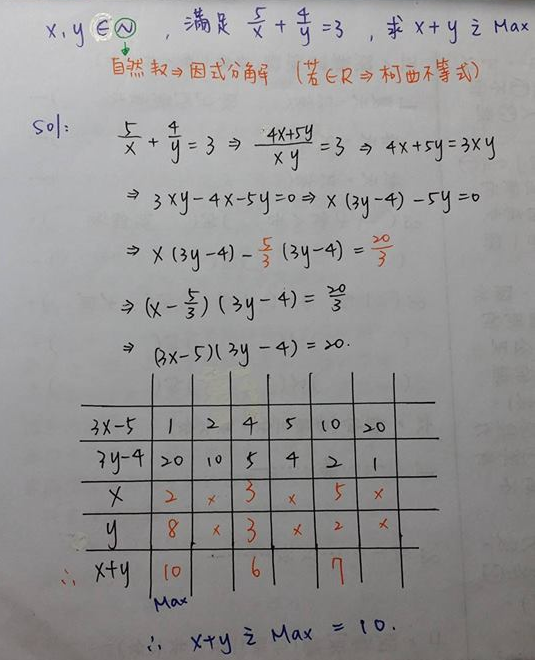 x, y ∈ N , 滿足 5/x + 4/y = 3 , 求 x+y 之 Max
自然數 ⇒ 因式分解 (若∈R ⇒ 柯西不等式)
Sol:
5/x + 4/y = 3 ⇒ (4x+5y)/(xy) = 3 ⇒ 4x+5y = 3xy
⇒ 3xy-4x-5y=0 ⇒ x(3y-4)-5y=0
⇒ x(3y-4) - 5/3 (3y-4) = 20/3
⇒ (x - 5/3)(3y-4) = 20/3
⇒ (3x-5)(3y-4) = 20.
3x-5 1 2 4 5 10 20
3y-4 20 10 5 4 2 1
x 2 × 3 × 5 ×
y 8 × 3 × 2 ×
∴ x+y 10 6 7
Max
∴ x+y 之 Max = 10.